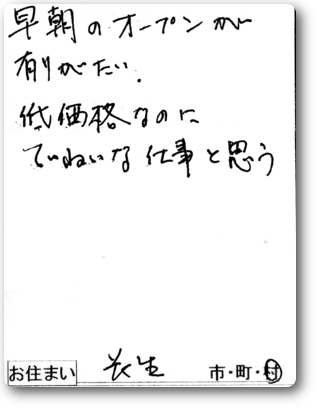 早朝のオープンが
有りがたい.
低価格なのに
ていねいな仕事と思う
お住まい 長生 市・町・村